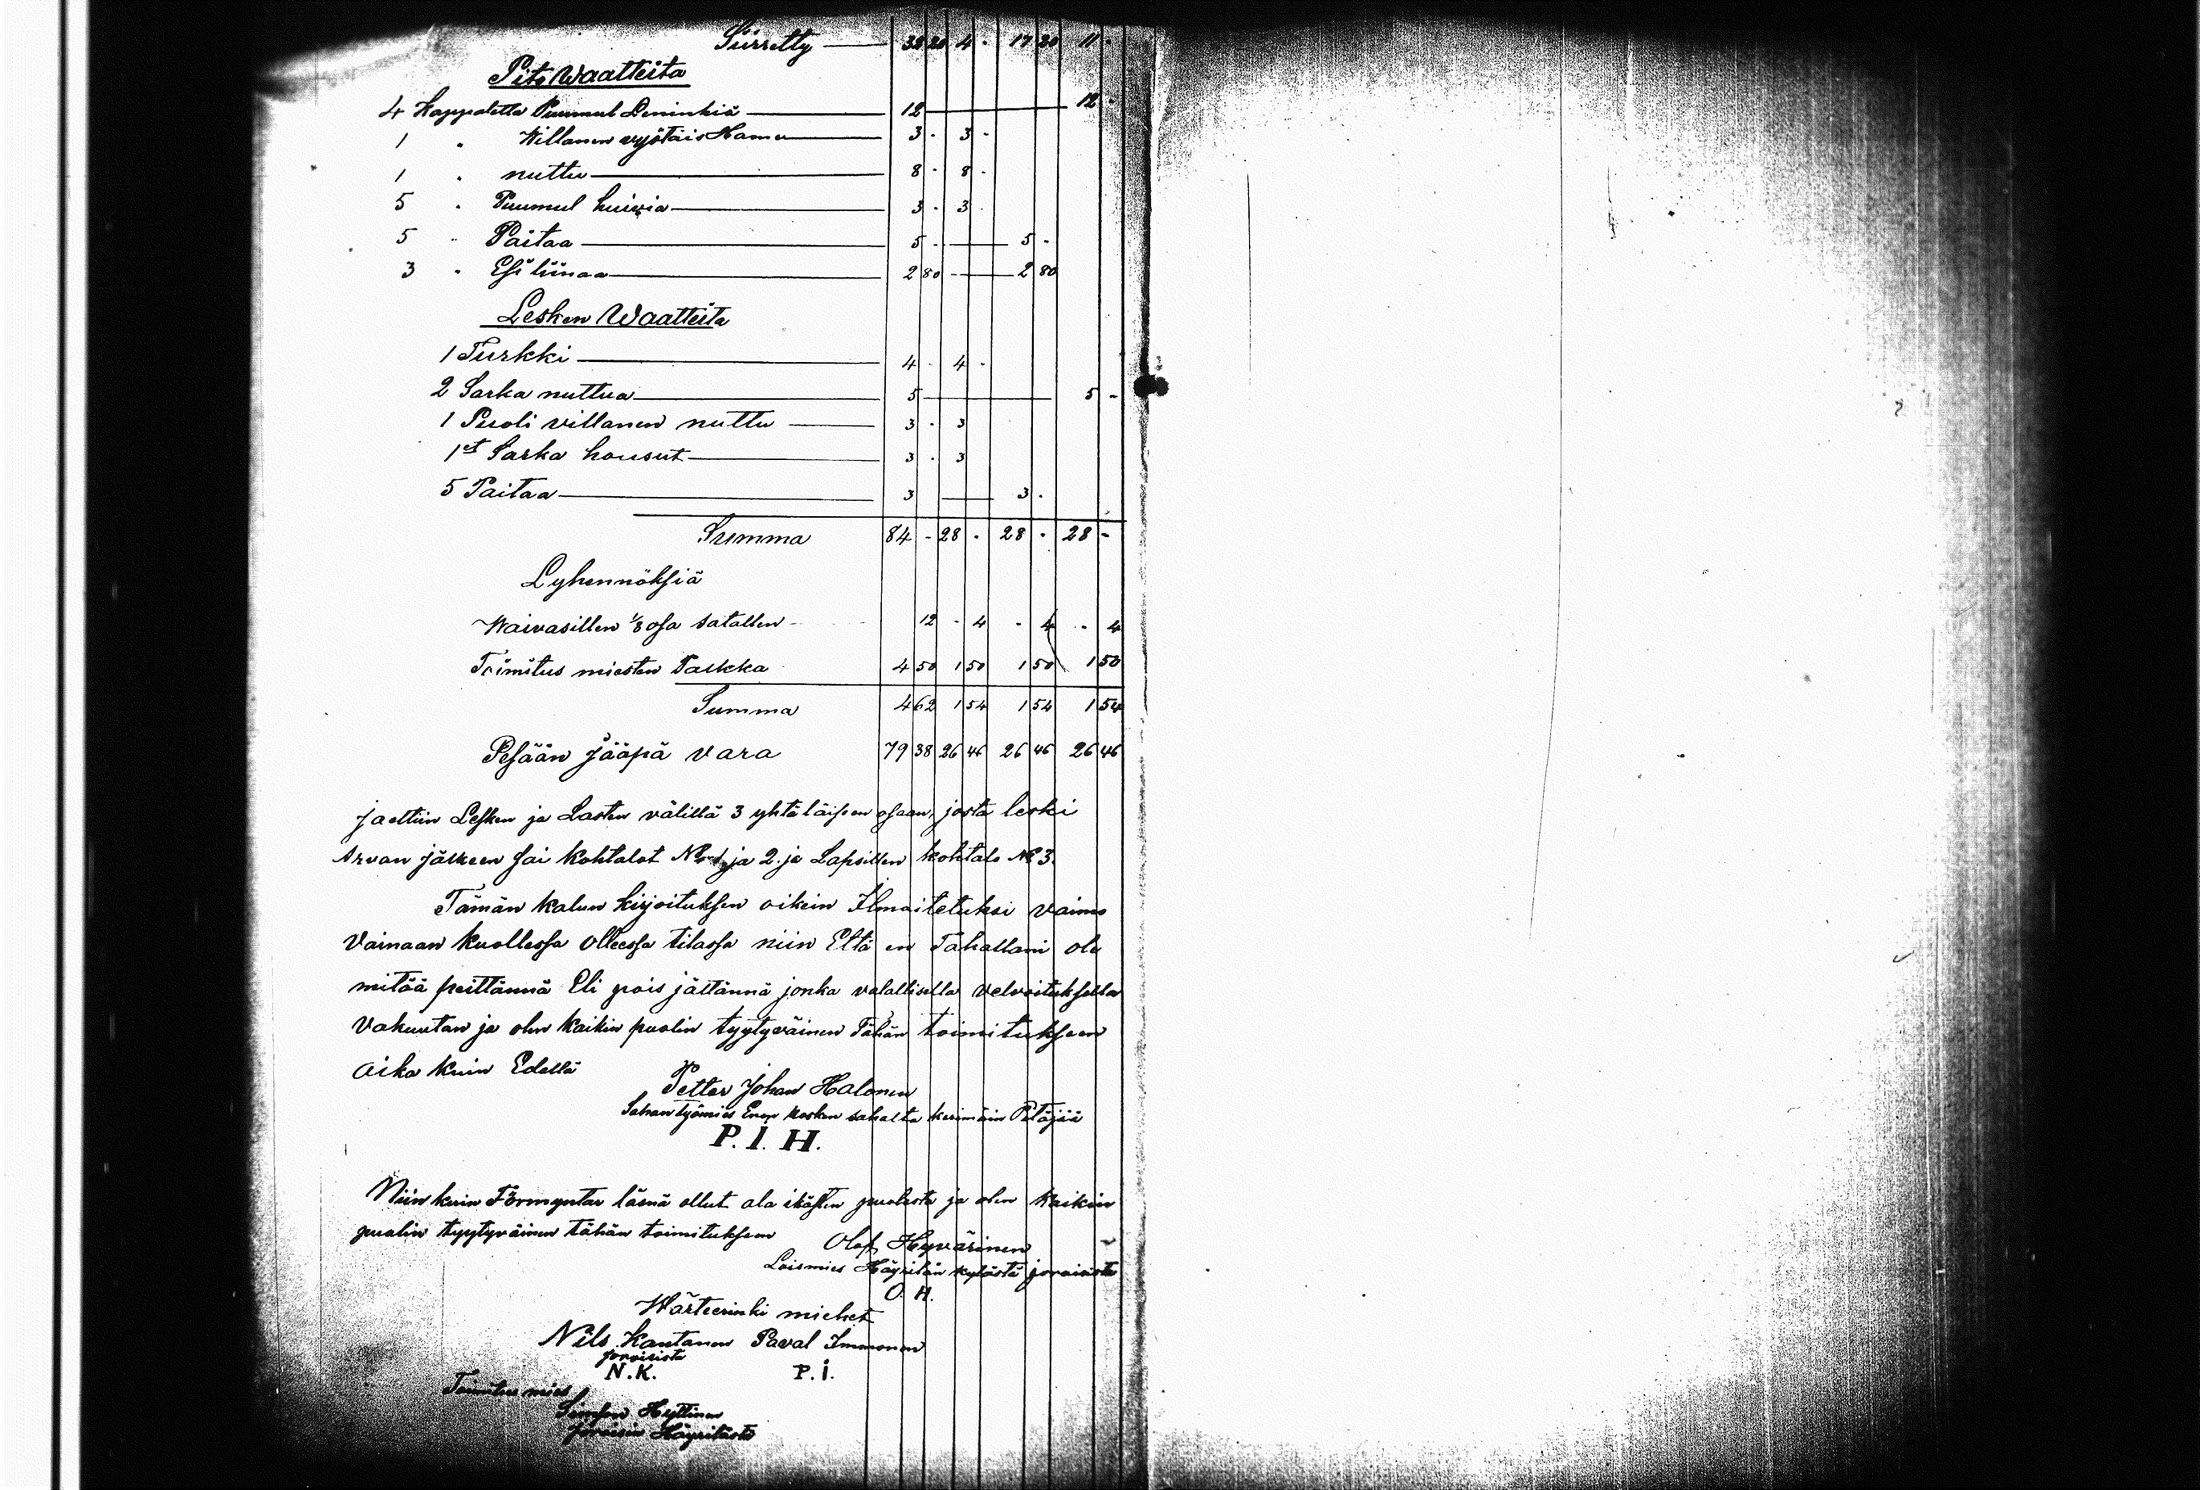 Siirretty — 32 20 4 - 17 20 11 -
Pito Waatteita
4 Kappaletta Puumul Leninkiä — 12 — 12 -
1 " Willanen vyötäis Hame — 3 - 3 -
1 " nuttu — 8 - 8 -
5 " Puumul huivia — 3 - 3
5 " Paitaa — 5 - — 5 -
3 " Esiliinaa — 2 80 - — 2 80
Lesken Waatteita
1 Turkki — 4 - 4 -
2 Sarka nuttua — 5 — 5 -
1 Puoli villanen nuttu — 3 - 3
1et Sarka housut — 3 - 3
5 Paitaa — 3 — 3 -
Summa 84 - 28 - 28 - 28 -
Lyhennöksiä
Waivasillen 1/8 osa satallen - 12 - 4 - 4 - 4
Toimitus miesten Palkka 4 50 1 50 1 50 1 50
Summa 4 62 1 54 1 54 1 54
Pesään Jääpä vara 79 38 26 46 26 46 26 46
Jaettiin Lesken ja Lasten välillä 3 yhtäläiseen osaan, josta leski
Arvan jälkeen sai kohtalot No 1 ja 2. ja Lapsillen kohtalo No 3.
Tämän kalun kirjoituksen oikein Ilmoitetuksi vaimo
Vainaan kuollessa olleessa tilassa niin Että en Tahallani ole
mitää peittännä Eli pois jättännä jonka valallisella velvoituksella
Vakuutan ja olen kaikin puolin tyytyväinen Tähän toimitukseen
Aika kuin Edellä
Petter Johan Halonen
Sahan työmies Enon kosken sahalta kerimäin Pitäjää
P. I. H.
Niin kuin Förmyntar läsnä ollut ala ikästen puolesta ja olen kaikin
puolin tyytyväinen tähän toimitukseen
Olof Hyvärinen
Loismies Häyrilän kylästä joroisista
O. H.
Wärteerinki miehet
Nils Kautanen Paval Immonen
joroisista
N.K. P. I.
Toimitus mies
Simon Hyttinen
joroisin Häyrilästä